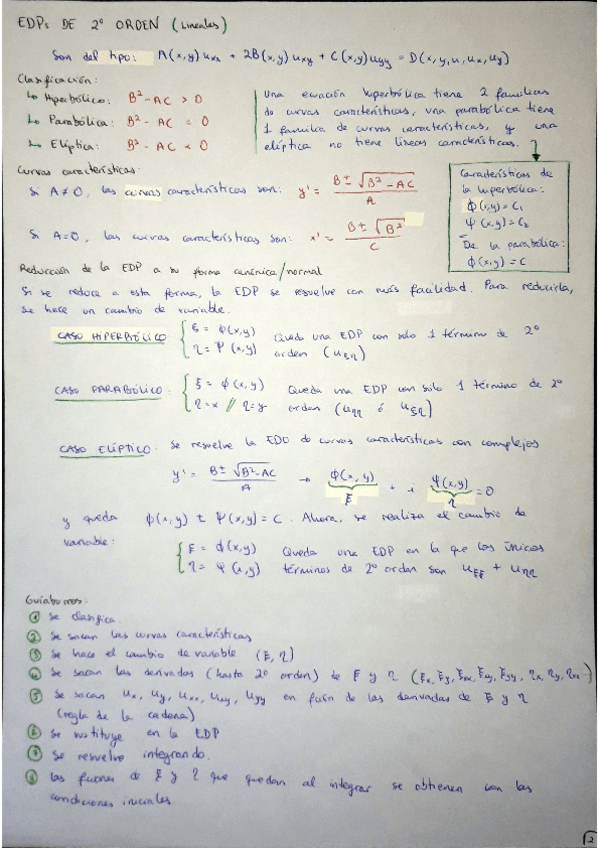 EDPs DE 2º ORDEN (Lineales)
Son del tipo: A(x,y) uxx + 2B(x,y) uxy + C(x,y) uyy = D(x,y,u,ux,uy)
Clasificación:
↳ Hiperbólico: B² - AC > 0
↳ Parabólica: B² - AC = 0
↳ Elíptica: B² - AC < 0
Una ecuación hiperbólica tiene 2 familias
de curvas características, una parabólica tiene
1 familia de curvas características, y una
elíptica no tiene líneas características.
Características de
la hiperbólica:
ϕ(x,y) = C₁
ψ(x,y) = C₂
De la parabólica:
ϕ(x,y) = C
Curvas características:
Si A≠0, las curvas características son: y' = (B ± √(B² - AC)) / A
Si A=0, las curvas características son: x' = (B ± √B²) / C
Reducción de la EDP a su forma canónica/normal
Si se reduce a esta forma, la EDP se resuelve con más facilidad. Para reducirla,
se hace un cambio de variable.
CASO HIPERBÓLICO { ξ = ϕ(x,y) Queda una EDP con solo 1 término de 2º
η = ψ(x,y) orden (uξη)
CASO PARABÓLICO: { ξ = ϕ(x,y) Queda una EDP con solo 1 término de 2º
η = x // η = y orden (uηη ó uξη)
CASO ELÍPTICO: se resuelve la EDO de curvas características con complejos
y' = (B ± √(B² - AC)) / A → ϕ(x,y) + i ψ(x,y) = 0
ξ η
y queda ϕ(x,y) ± ψ(x,y) = C. Ahora, se realiza el cambio de
variable: { ξ = ϕ(x,y) Queda una EDP en la que los únicos
η = ψ(x,y) términos de 2º orden son uξξ + uηη
Guíaburros:
① Se clasifica.
② Se sacan las curvas características
③ Se hace el cambio de variable (ξ, η)
④ Se sacan las derivadas (hasta 2º orden) de ξ y η (ξx, ξy, ξxx, ξxy, ξyy, ηx, ηy, ηxx...)
⑤ Se sacan ux, uy, uxx, uxy, uyy en fución de las derivadas de ξ y η
(regla de la cadena)
⑥ Se sustituye en la EDP
⑦ Se resuelve integrando.
⑧ Las fuciones de ξ y η que quedan al integrar se obtienen con las
condiciones iniciales
2